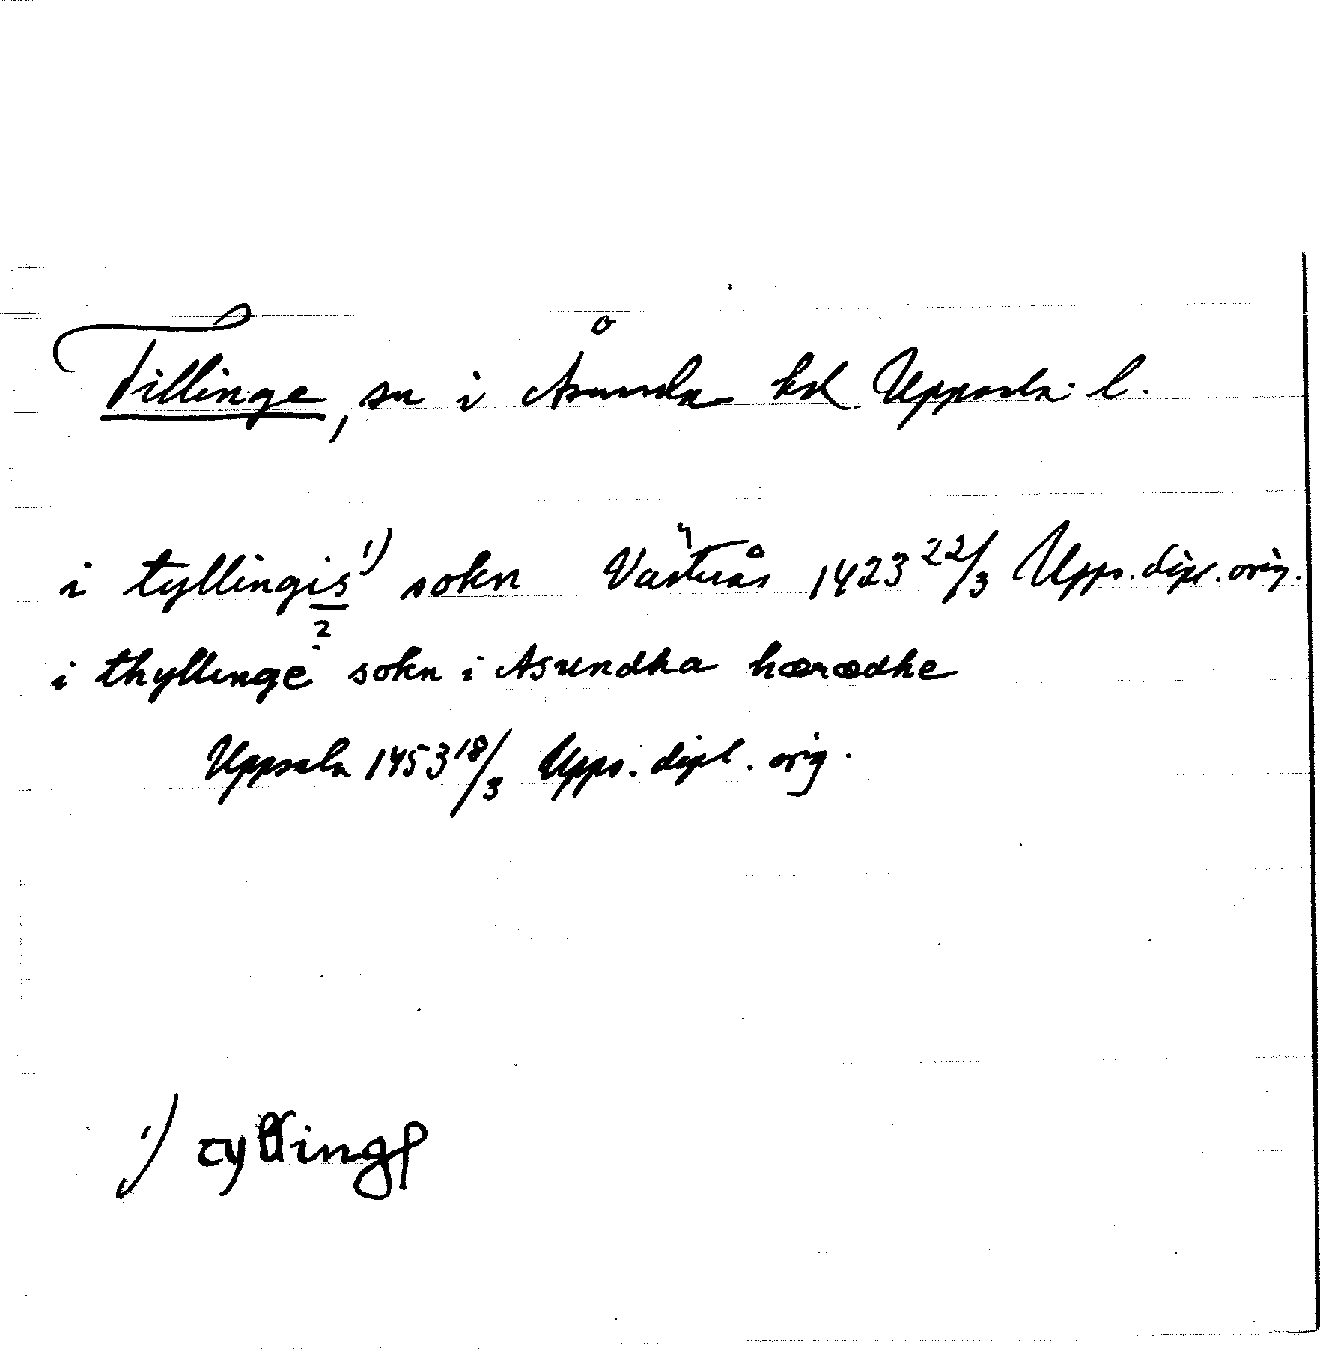 Tillinge, sn i Åsunda hd Uppsala l.
i tyllingis¹⁾ sokn Västerås 1423 22/3 Upps. dipl. orig.
2
i thyllinge sokn i Asundha hærædhe
Uppsala 1453 18/3 Upps. dipl. orig.
1) tylling